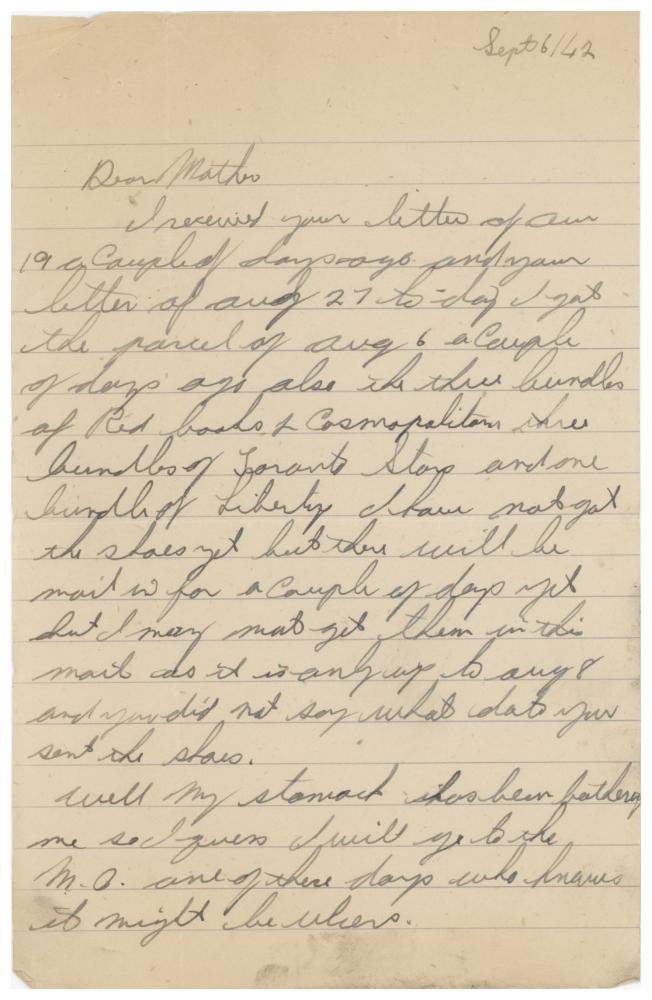 Sept 6/42
Dear Mother
I received your letter of aur
19 a Couple of days ago and your
letter of aug 27 to-day I got
the parcel of aug 6 a Couple
of days ago also the three bundles
of Red books & Cosmopolitans three
bundles of Toronto Stars and one
bundle of Liberty I have not got
the shoes yet but there will be
mail in for a Couple of days yet
but I may not get them in this
mail as it is only up to aug 8
and you did not say what date you
sent the shoes.
Well my stomach has been bothering
me so I guess I will go to the
M.O. one of these days who knows
it might be ulcers.